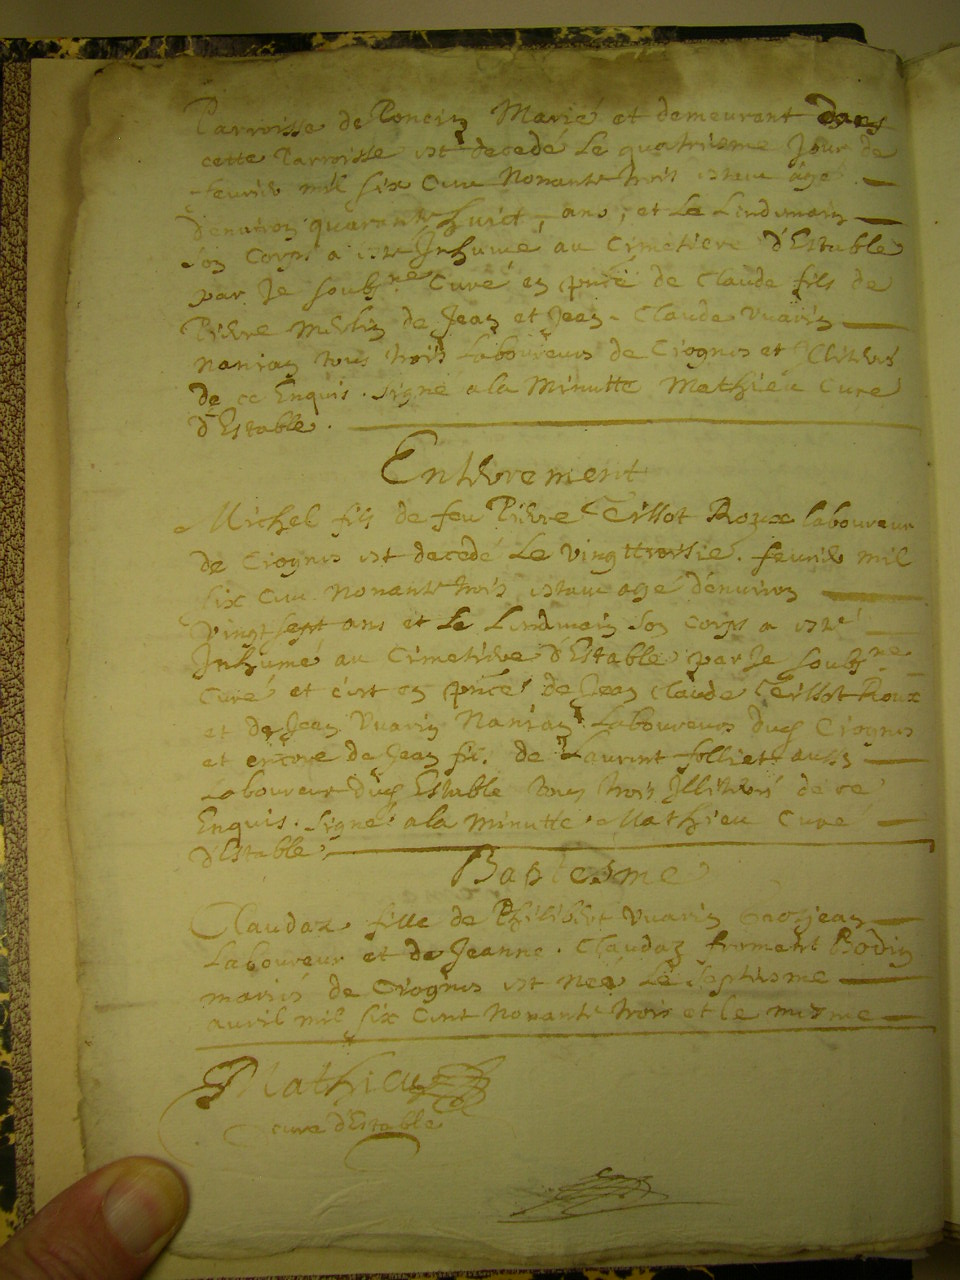 Parroisse de Poncin Marié et demeurant dans
cette Parroisse est decedé Le quatriesme Jour de
feurier mil six Cens Nonante trois estant âge
d'enuiron quarante huict ans, et Le Lendemain
Son Corps a esté Inhumé au Cimetiere d'Estable
par Je soubne Curé en pnce de Claude fils de
Pierre de Jean et Jean-Claude Vuarin
Nanian tous trois Laboureurs de Ciognes et Illiterés
de ce Enquis. signé a la Minutte Mathieu Curé
d'Estable.
Enterrement
Michel fils de feu Pierre Tillot Roux laboureur
de Ciognes est decedé Le vingttroisie. feurier mil
six Cens Nonante trois estant age d'enuiron
vingt sept ans et Le Lendemain Son Corps a esté
Inhumé au Cimetiere d'Estable par Je soubne
Curé et c'est en pnce de Jean Claude Tillot Roux
et de Jean Vuarin Nanian Laboureurs dud Ciognes
et encore de Jean fils de Laurent folliet aussy
Laboureur dud Estable tous trois Illiterés de ce
Enquis. signé a la Minutte Mathieu Curé
d'Estable.
Baptesme
Claudaz fille de Philibert Vuarin Grosjean
Laboureur et de Jeanne. Claudaz fremert Bodin
mariés de Ciognes est neé Le Septiesme
auril mil six Cent Nonante trois et le mesme
Mathieu
curé d'Estable